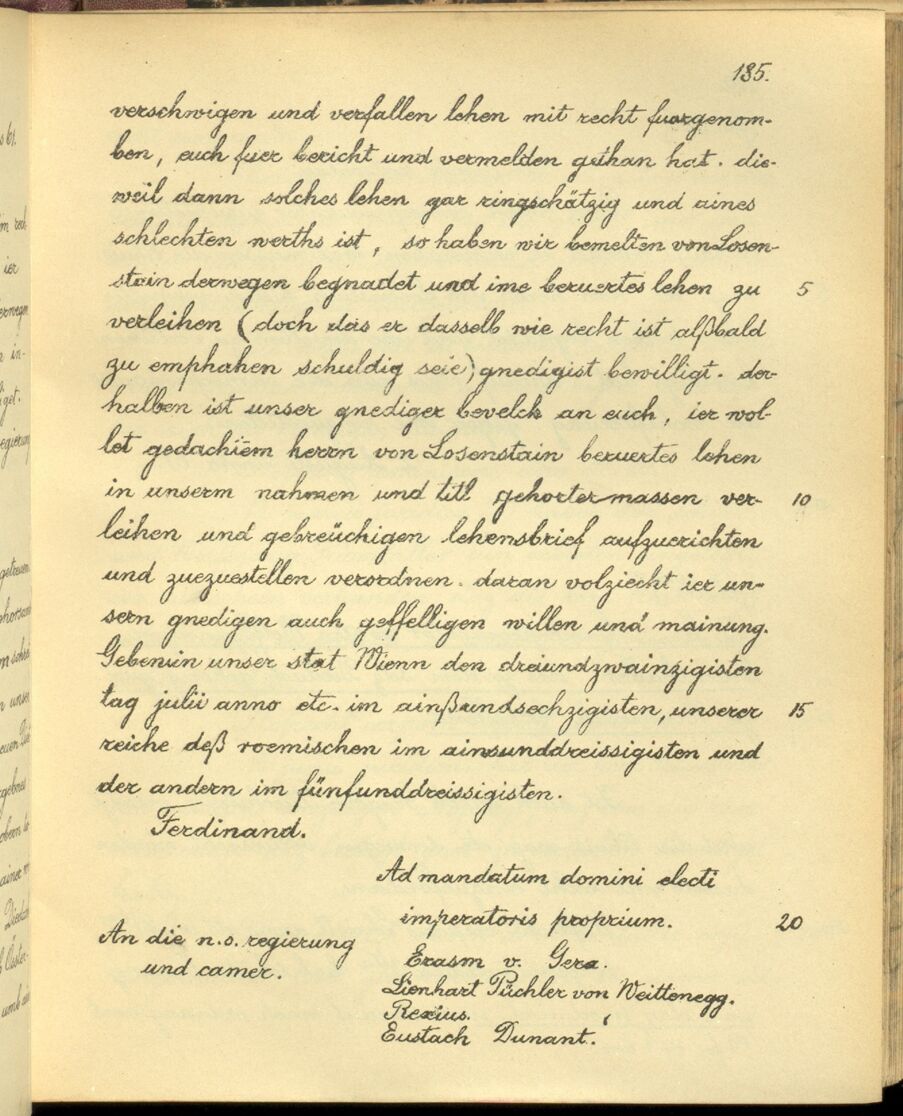 185.
verschwigen und verfallen lehen mit recht fuorgenom-
ben, euch fuer bericht und vermelden gethan hat. die-
weil dann solches lehen gar ringschätzig und aines
schlechten werths ist, so haben wir bemelten von Losen-
stain derwegen begnadet und ime beruertes lehen zu 5
verleihen (doch das er dasselb wie recht ist alßbald
zu emphahen schuldig seie) gnedigist bewilligt. der-
halben ist unser gnediger bevelch an euch, ier wol-
let gedachtem herrn von Losenstain beruertes lehen
in unserm nahmen und titl gehortermassen ver- 10
leihen und gebreüchigen lehensbrief aufzuerichten
und zuezuestellen verordnen. daran volziecht ier un-
sern gnedigen auch geffelligen willen und mainung.
Geben in unser stat Wienn den dreiundzwainzigisten
tag julii anno etc. im ainßundsechzigisten, unserer 15
reiche deß roemischen im ainsunddreissigisten und
der andern im fünfunddreissigisten.
Ferdinand.
Ad mandatum domini electi
imperatoris proprium. 20
An die n.o. regierung
und camer.
Erasm v. Gera.
Lienhart Püchler von Weittenegg.
Rexius.
Eustach Dunant.